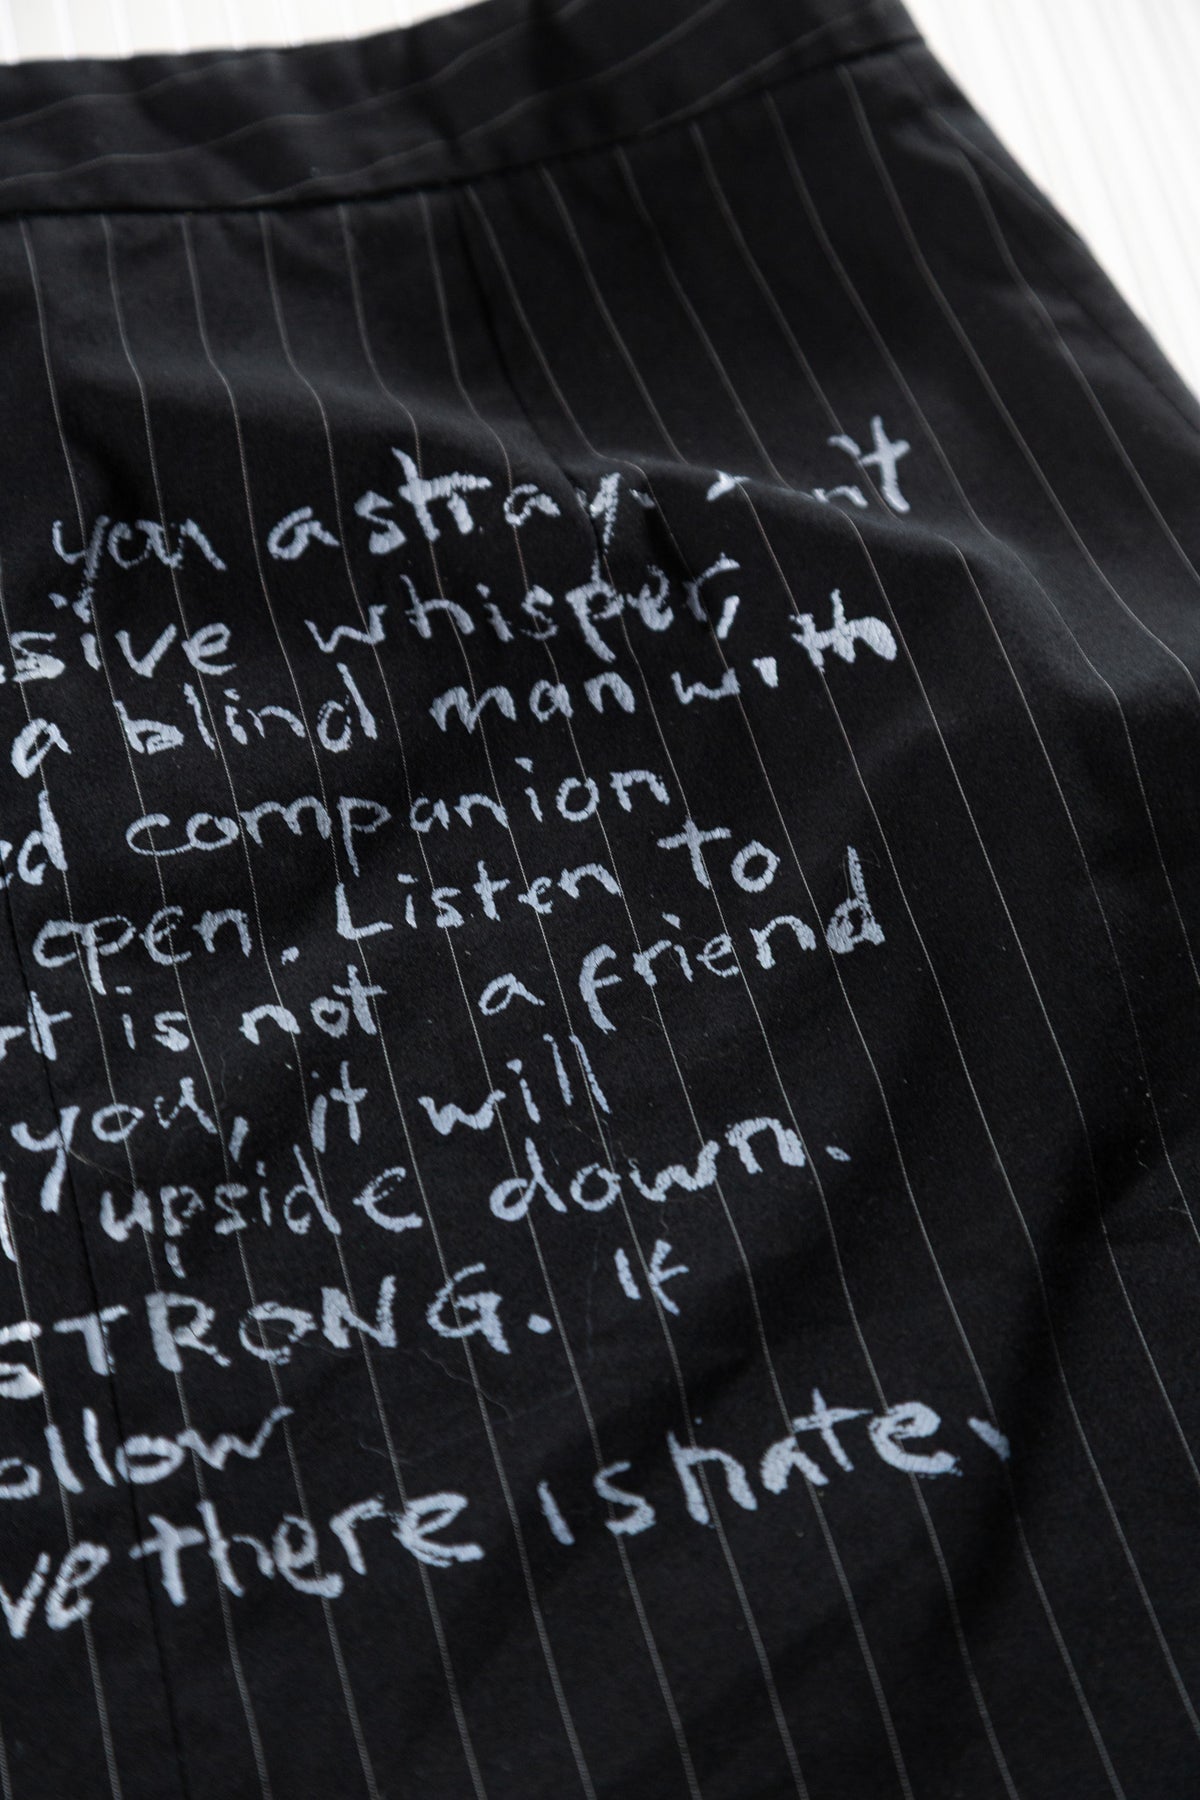 you astray.
sive whisper,
a blind man with
companion
open. Listen to
rt is not a friend
you, it will
upside down.
STRONG. If
ollow
ve there is hate.